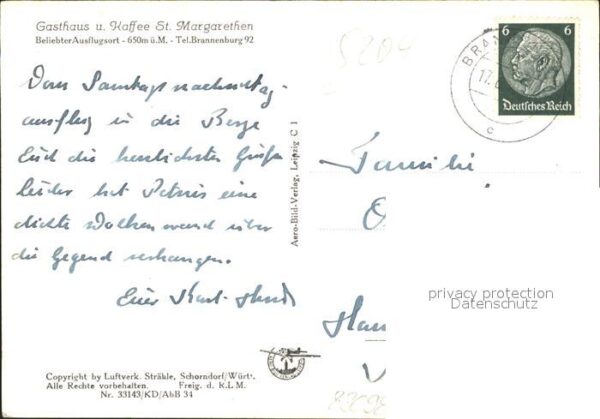 Gasthaus u. Kaffee St. Margarethen
Beliebter Ausflugsort - 650m ü. M. - Tel. Brannenburg 92
5204
Vom Samstagnachmittag-
ausflug in die Berge
Euch die herzlichsten Grüße
leider hat Petrus eine
dichte Wolkenwand über
die Gegend verhangen.
Euer Karl-
Aero-Bild-Verlag, Leipzig C 1
BRAN
17.
c
6 6
Deutsches Reich
Familie
O
Han
privacy protection
Copyright by Luftverk. Strähle, Schorndorf/Württ.
Alle Rechte vorbehalten. Freig. d. R.L.M.
Nr. 33143/KD/AbB 34